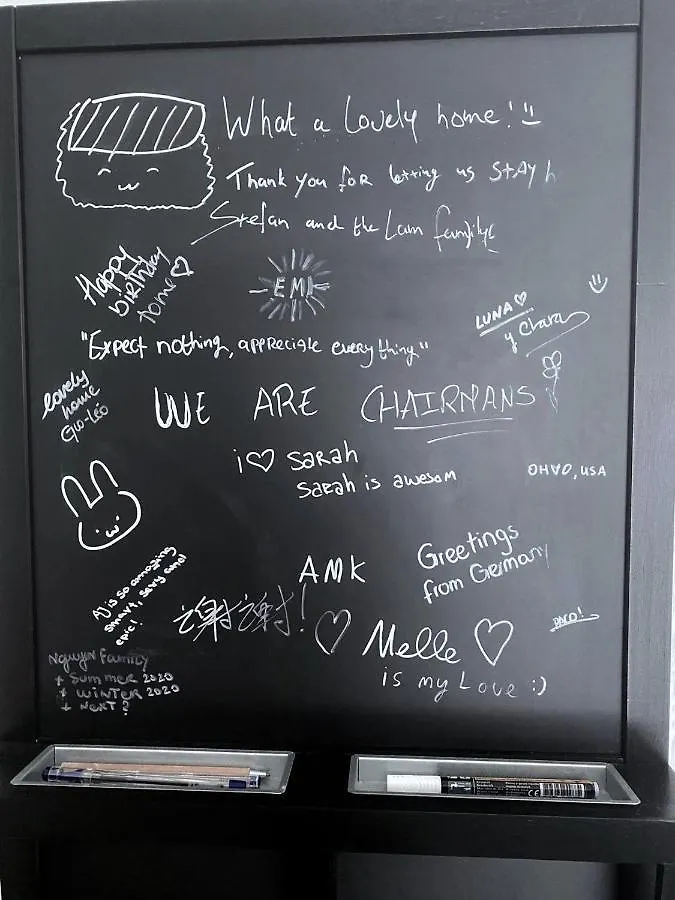 What a Lovely home!
Thank you for letting us stay h
Stefan and the Lam family
Happy
birthday
Tome♡
EMI
LUNA♡
y Chara
"Expect nothing, appreciate everything"
lovely
home
Gio-Léo
WE ARE CHAIRMANS
i♡ Sarah
Sarah is awesom
OHVO, USA
AJ is so amazing
smart, sexy and
epic!
AMK
Greetings
from Germany
謝謝!
♡ Melle ♡
is my Love :)
PACO!
Nguyen Family
+ Summer 2020
+ WiNTER 2020
↓ NexT?